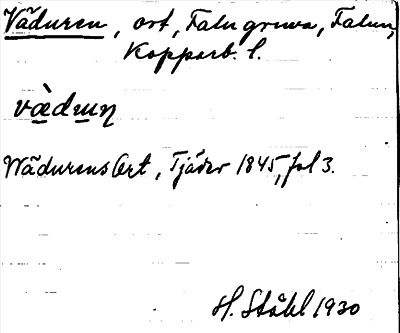 Väduren, ort, Falu gruva, Falun,
Kopparb. l.
vädun
Wädurens Ort, Tjäder 1845, fol 3.
H. Ståhl 1930